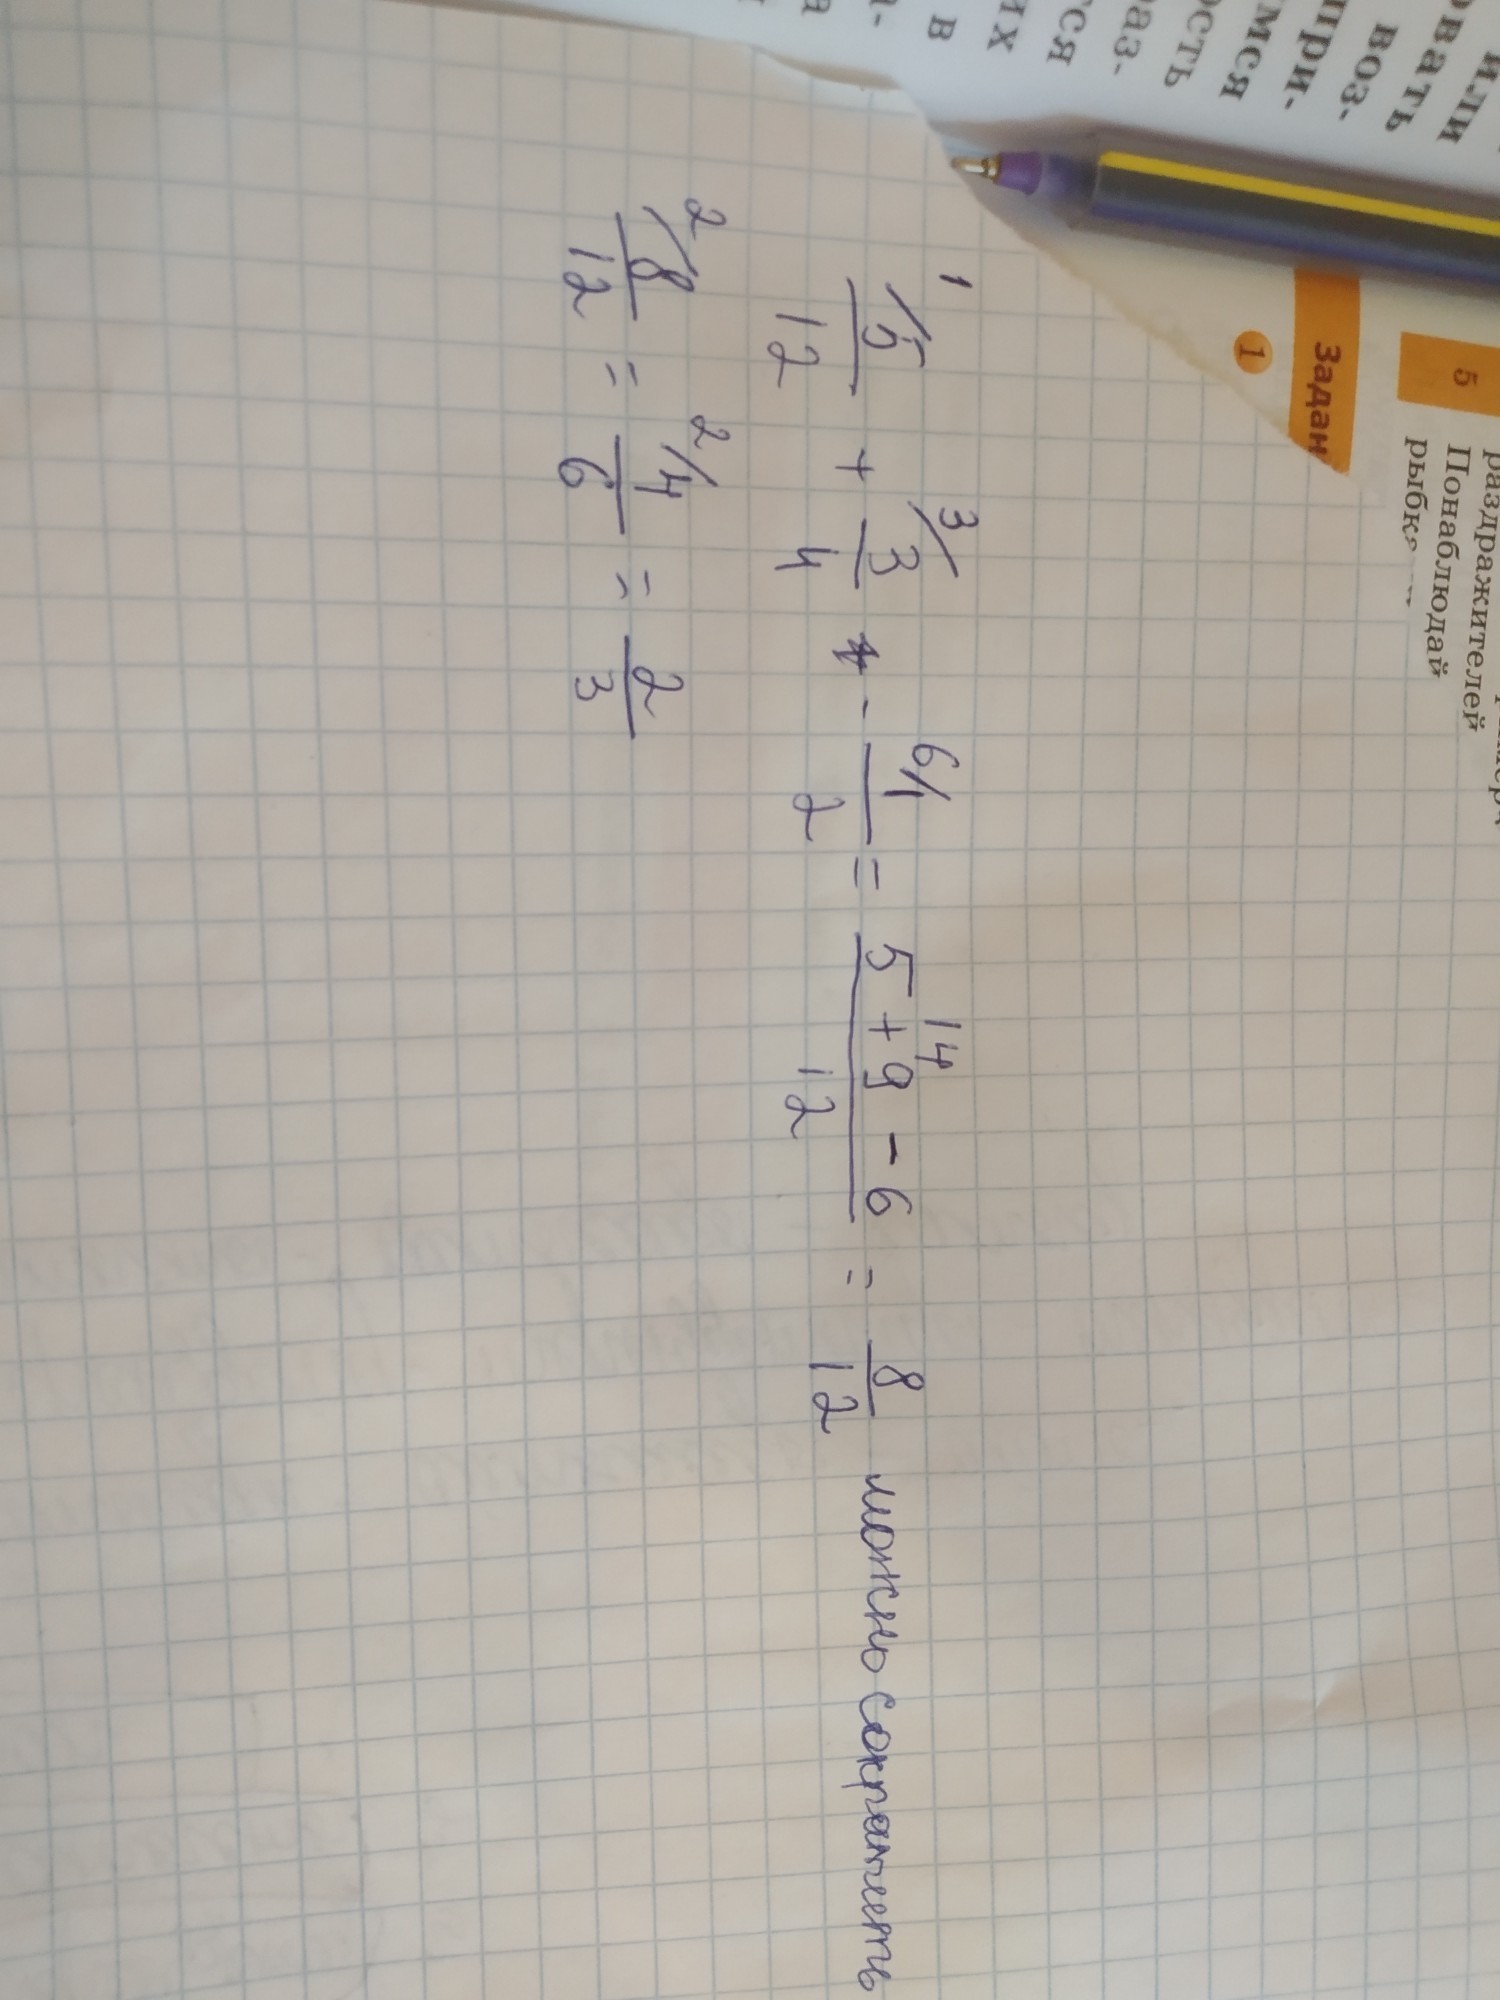 или
овать
воз-
при-
мся
ость
аз-
тся
их
в
а-
а
5
раздражителей
Понаблюдай
рыбк
Задан
1
1/5/12 + 3/3/4 - 6/1/2 = 5 + 9 - 6/12 = 8/12 можно сократить
14
2/8/12 = 2/4/6 = 2/3